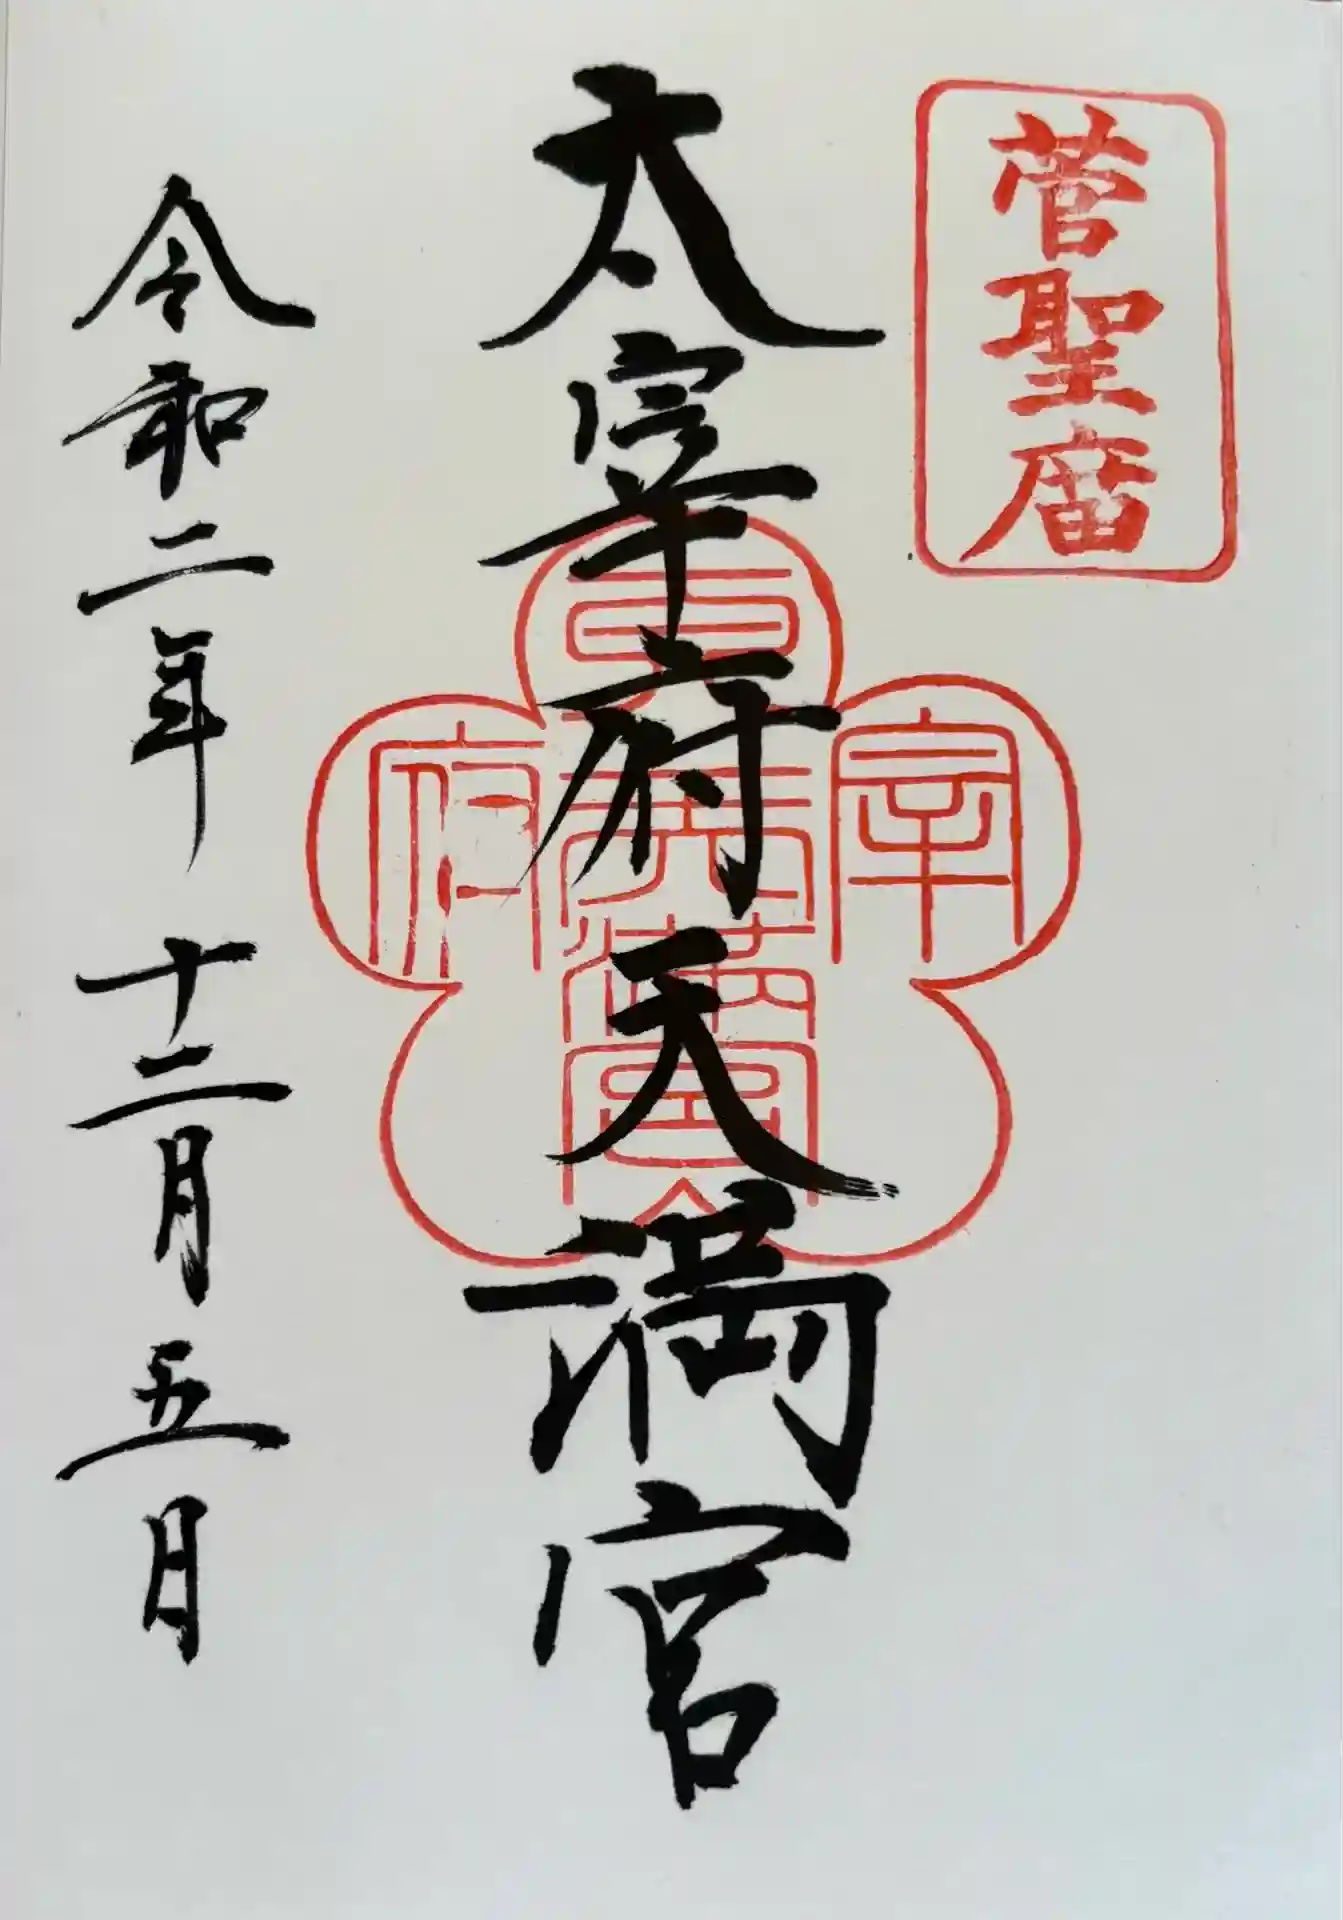 菅聖庿
太宰府天満宮
太宰府天満宮
令和二年 十二月五日